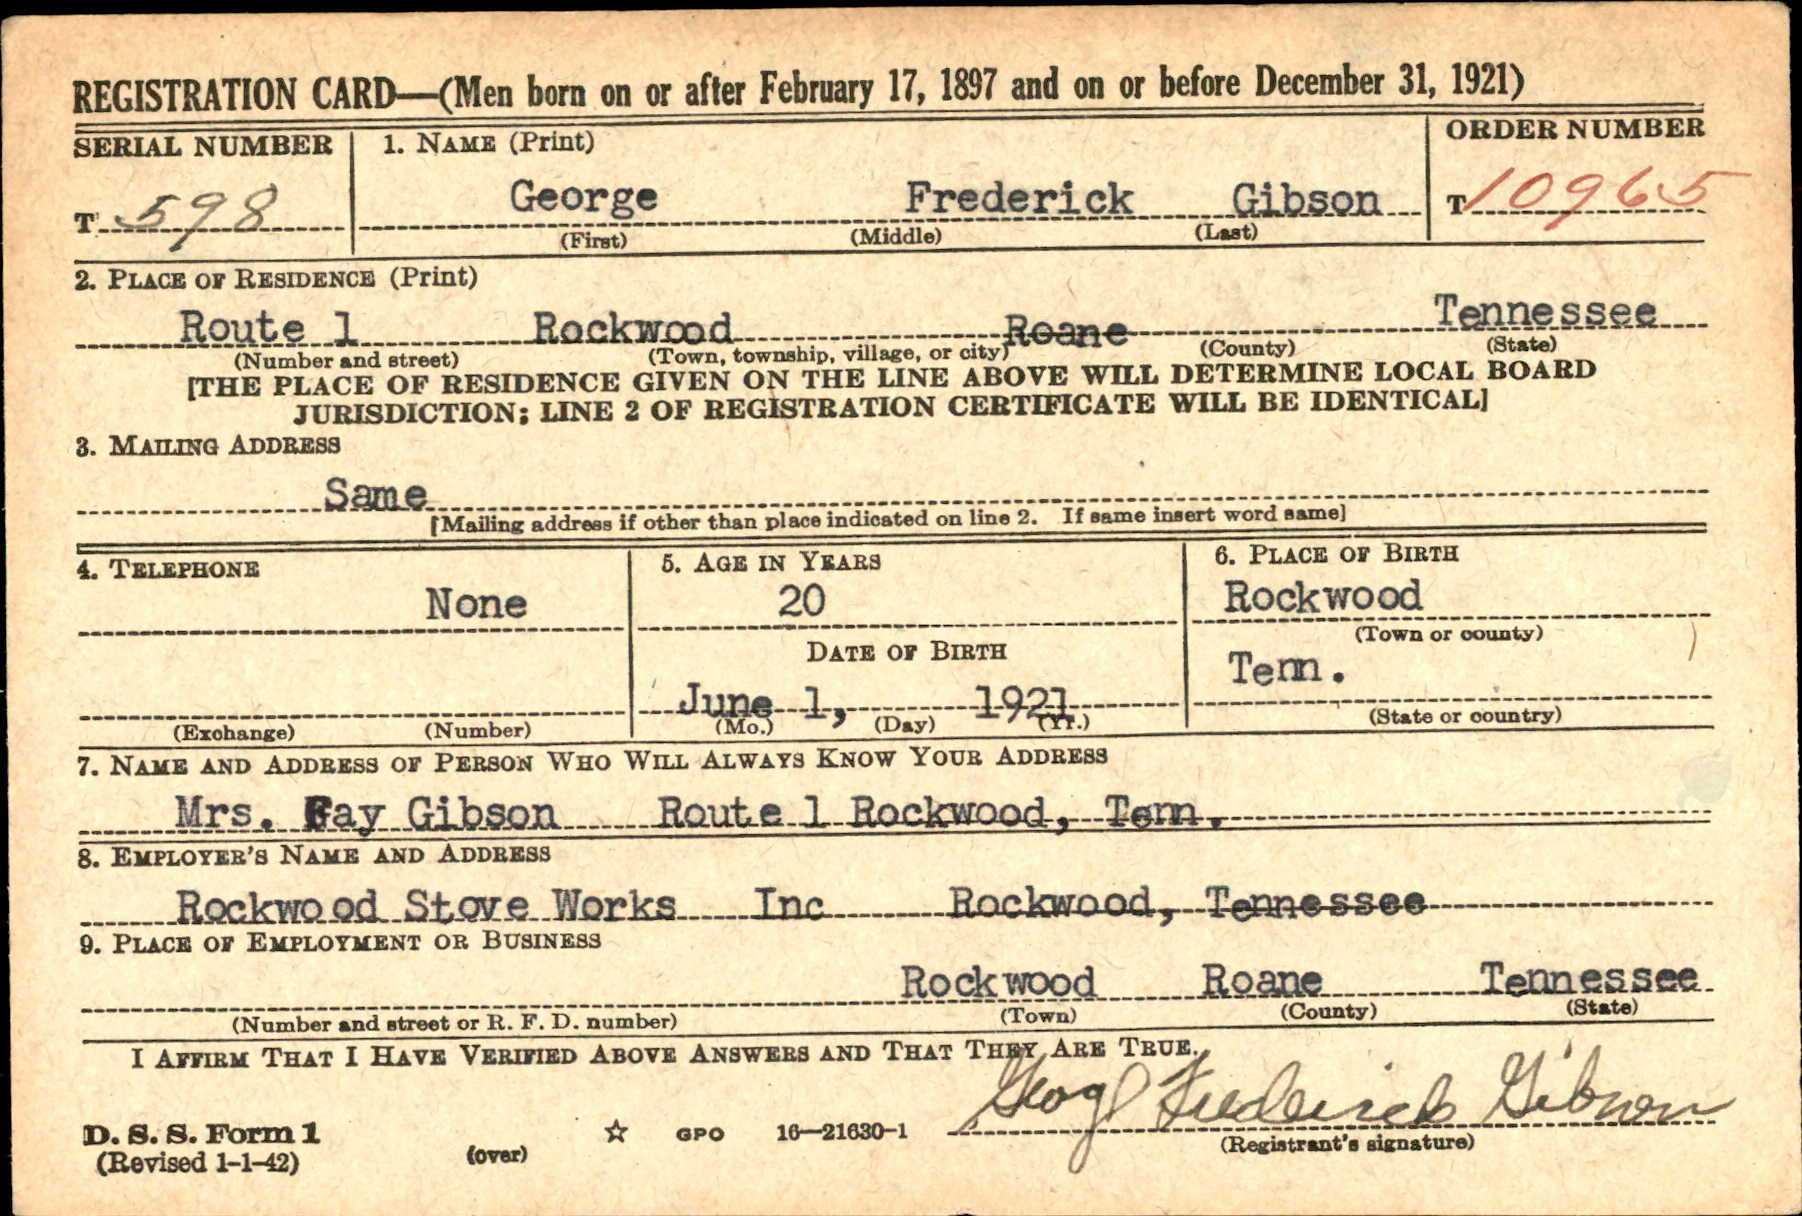 REGISTRATION CARD—(Men born on or after February 17, 1897 and on or before December 31, 1921)
SERIAL NUMBER 1. NAME (Print) ORDER NUMBER
T 598 George Frederick Gibson T 10965
(First) (Middle) (Last)
2. PLACE OF RESIDENCE (Print)
Route 1 Rockwood Roane Tennessee
(Number and street) (Town, township, village, or city) (County) (State)
[THE PLACE OF RESIDENCE GIVEN ON THE LINE ABOVE WILL DETERMINE LOCAL BOARD
JURISDICTION; LINE 2 OF REGISTRATION CERTIFICATE WILL BE IDENTICAL]
3. MAILING ADDRESS
Same
[Mailing address if other than place indicated on line 2. If same insert word same]
4. TELEPHONE 5. AGE IN YEARS 6. PLACE OF BIRTH
None 20 Rockwood
(Town or county)
DATE OF BIRTH Tenn.
June 1, 1921
(Exchange) (Number) (Mo.) (Day) (Yr.) (State or country)
7. NAME AND ADDRESS OF PERSON WHO WILL ALWAYS KNOW YOUR ADDRESS
Mrs. Gibson Route 1 Rockwood, Tenn.
8. EMPLOYER'S NAME AND ADDRESS
Rockwood Stove Works Inc Rockwood, Tennessee
9. PLACE OF EMPLOYMENT OR BUSINESS
Rockwood Roane Tennessee
(Number and street or R. F. D. number) (Town) (County) (State)
I AFFIRM THAT I HAVE VERIFIED ABOVE ANSWERS AND THAT THEY ARE TRUE.
Frederick Gibson
D. S. S. Form 1 ☆ GPO 16—21630-1 (Registrant's signature)
(Revised 1-1-42) (over)